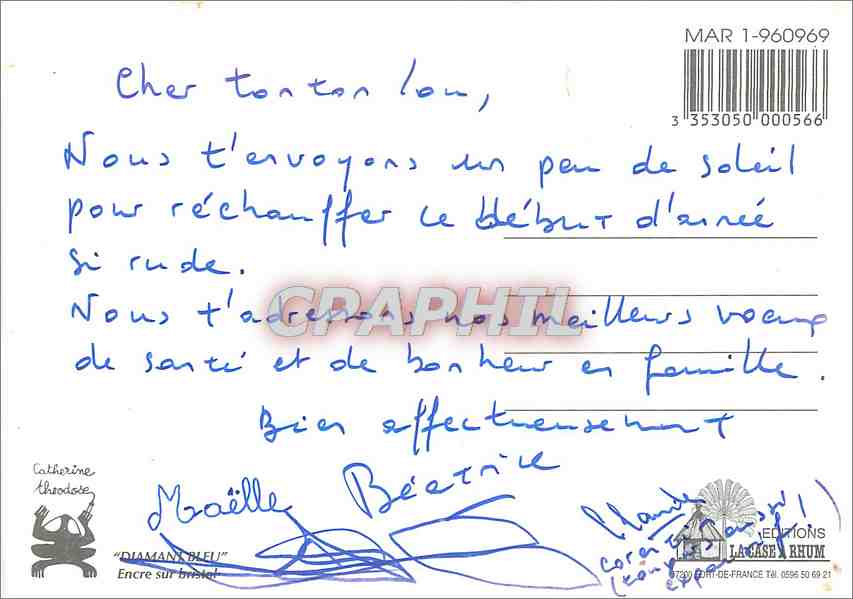 MAR 1-960969
3 353050 000566
Cher tonton Lou,
Nous t'envoyons un peu de soleil
pour réchauffer ce début d'année
si rude.
Nous t'adressons nos meilleurs voeux
de santé et de bonheur en famille.
Bien affectueusement
CPAPHIL
Béatrice
Maëlle
Catherine
Theodose
"DIAMANT BLEU"
Encre sur bristol
aussi
(toujours
EDITIONS
LA CASE A RHUM
97200 FORT-DE-FRANCE Tél. 0596 50 69 21